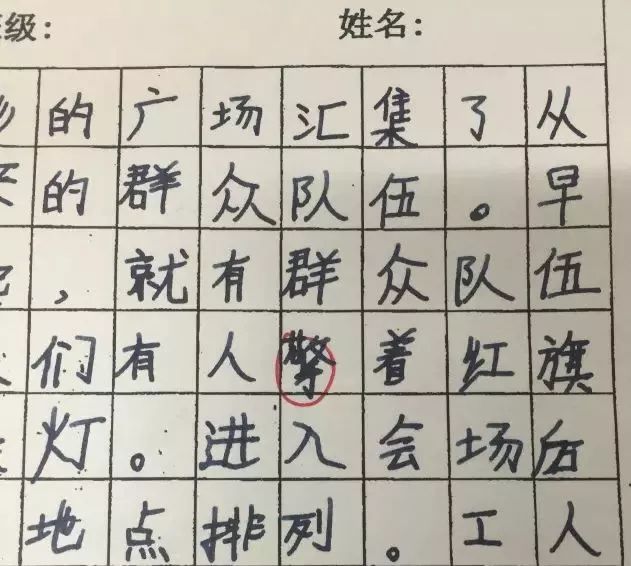 级： 姓名：
的广场汇集了从
的群众队伍。早
，就有群众队伍
们有人擎着红旗
灯。进入会场后
地点排列。工人